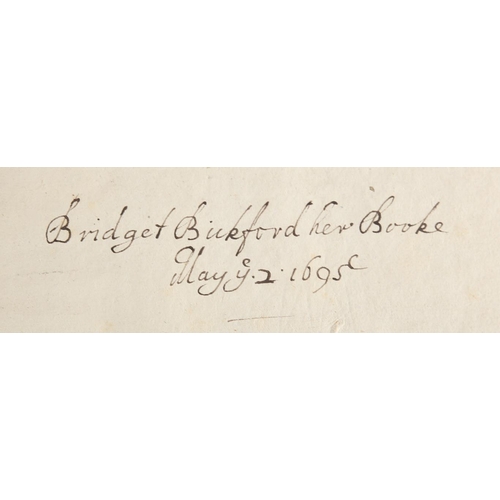 Bridget Bickford her Booke
May yᵉ. 2. 1695